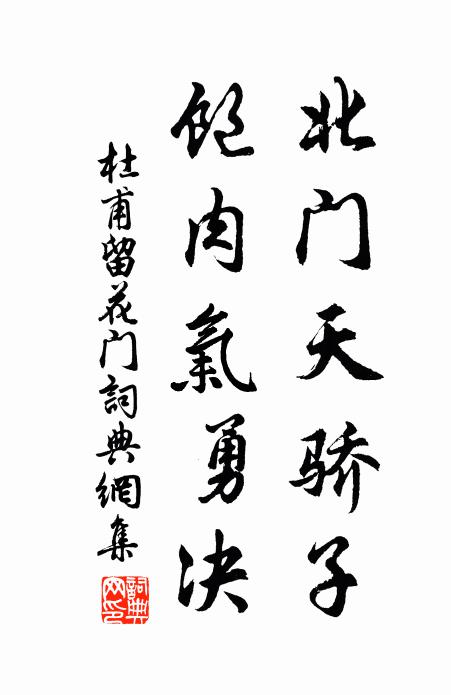 北门天骄子
饱肉氣勇决
杜甫留花门詞典網集
詞典网印